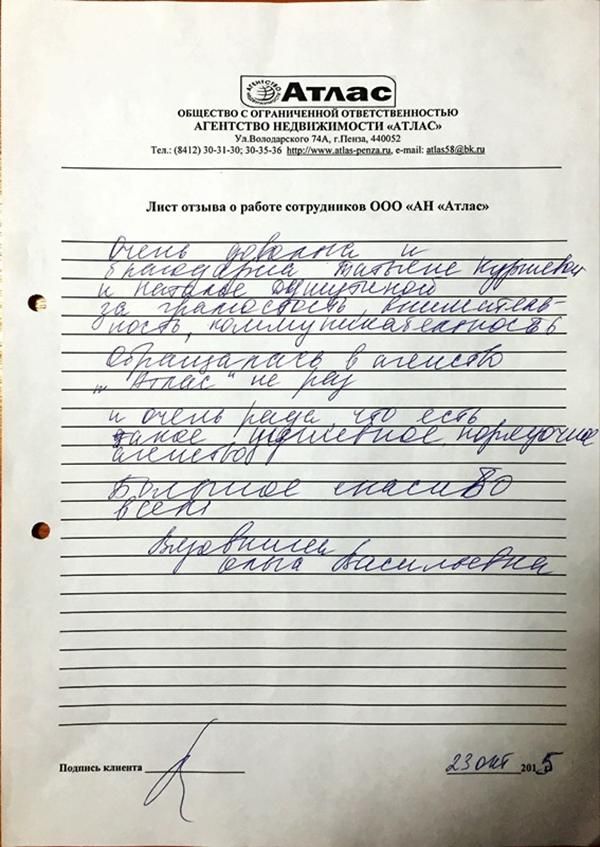 АГЕНТСТВО НЕДВИЖИМОСТИ
Атлас
ОБЩЕСТВО С ОГРАНИЧЕННОЙ ОТВЕТСТВЕННОСТЬЮ
АГЕНТСТВО НЕДВИЖИМОСТИ «АТЛАС»
Ул.Володарского 74А, г.Пенза, 440052
Тел.: (8412) 30-31-30; 30-35-36 http://www.atlas-penza.ru, e-mail: atlas58@bk.ru
Лист отзыва о работе сотрудников ООО «АН «Атлас»
Очень довольна и
Татьяне
и Наталье
за грамотность, вниматель-
ность, коммуникабельность
Обращалась в агенство
"Атлас" не раз
и очень рада, что есть
такое душевное, порядочное
агенство
Большое спасибо
всем!
Ольга Васильевна
Подпись клиента
23 окт 2015